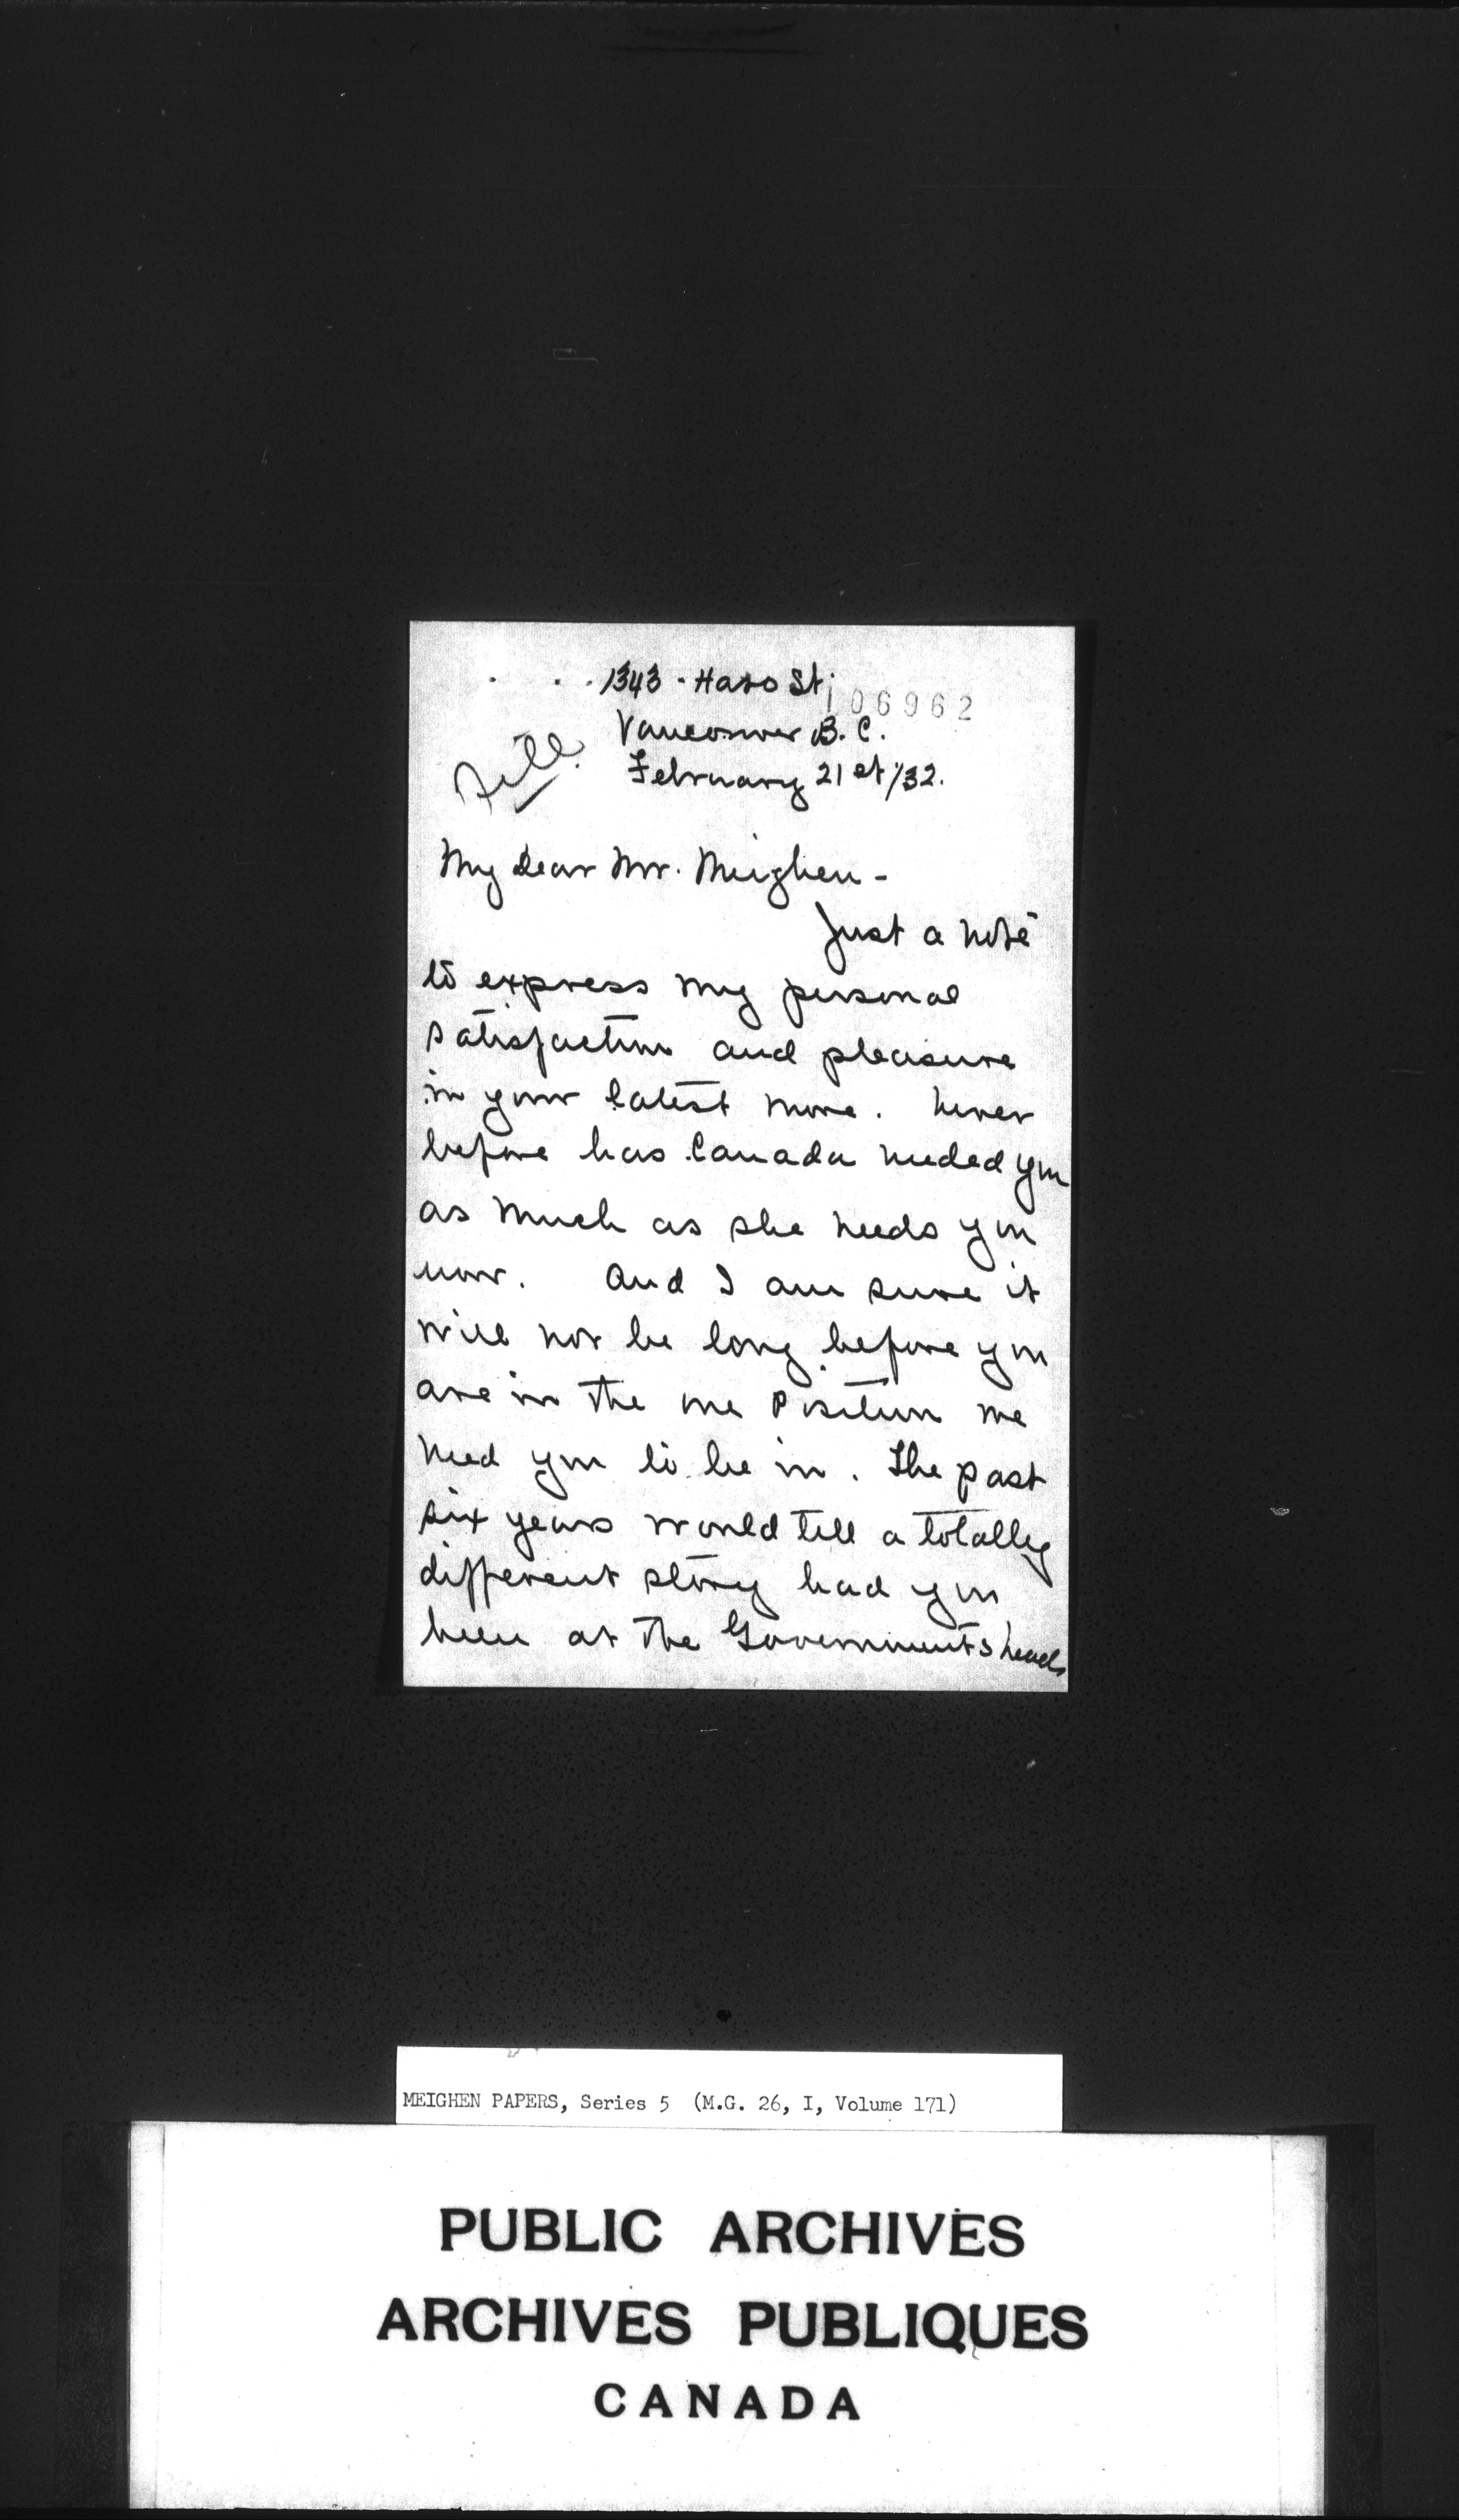 1343 - Haro St.
106962
Vancouver B.C.
File.
February 21st/32.
My dear Mr. Meighen -
Just a note
to express my personal
satisfaction and pleasure
in your latest move. Never
before has Canada needed you
as much as she needs you
now. And I am sure it
will not be long before you
are in the one position we
need you to be in. The past
six years would tell a totally
different story had you
been at the Governments head.
MEIGHEN PAPERS, Series 5 (M.G. 26, I, Volume 171)
PUBLIC ARCHIVES
ARCHIVES PUBLIQUES
CANADA